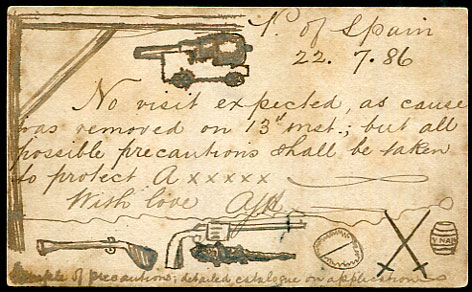 P. of Spain
22. 7. 86
No visit expected, as cause
was removed on 13th inst.; but all
possible precautions shall be taken
to protect A x x x x x
With love
Sample of precautions; detailed catalogue on application